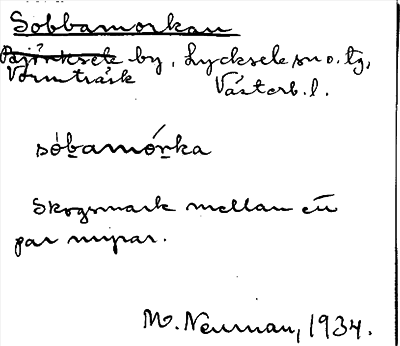 Sobbamorkan
Björksele by, Lycksele sn o. tg,
Vormträsk Västerb. l.
sóbamórka
Skogsmark mellan ett
par myrar.
M. Neuman, 1934.